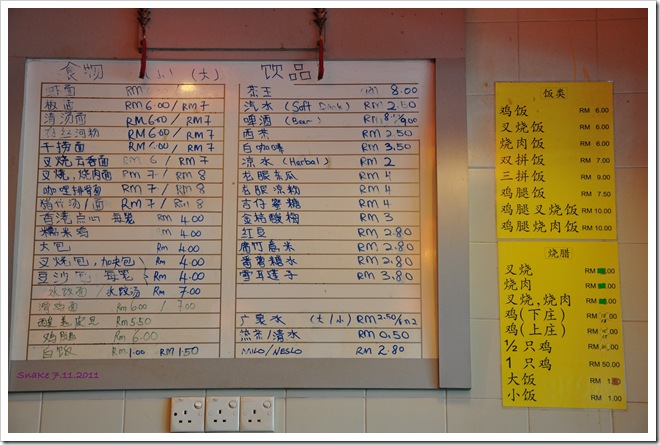 食物 (小) (大)
面 RM6
RM6.00 / RM7
清汤面 RM6.00 / RM7
河粉 RM6.00 / RM7
干捞面 / RM7
叉烧云吞面 RM6 / RM7
叉烧,烧肉面 RM7 / RM8
咖哩 面 RM7 / RM8
汤/面 RM7 / RM8
香港点心 每笼 RM 4.00
糯米鸡 RM 4.00
大包 RM 4.00
叉烧包, RM 4.00
豆沙包 每笼 RM 4.00
水饺面 / 水饺汤 RM 7.00
滑鸡面 RM6.00 / 7.00
RM5.50
鸡 RM 6.00
白饭 RM1.00 RM1.50
饮品
茶王 RM 8.00
汽水 (Soft Drink) RM 2.50
啤酒 (Beer)
西茶 RM 2.50
白咖啡 RM 3.50
凉水 (Herbal) RM 2
龙眼冬瓜 RM 4
龙眼凉粉 RM 4
古仔蜜糖 RM 4
金桔酸梅 RM 3
红豆 RM 2.80
腐竹薏米 RM 2.80
番薯糖水 RM 2.80
雪耳莲子 RM 3.80
水 (大/小) RM2.50
清水 RM 0.50
MILO/NESLO RM 2.80
饭类
鸡饭 RM 6.00
叉烧饭 RM 6.00
烧肉饭 RM 6.00
双拼饭 RM 7.00
三拼饭 RM 9.00
鸡腿饭 RM 7.50
鸡腿叉烧饭 RM 10.00
鸡腿烧肉饭 RM 10.00
烧腊
叉烧 RM .00
烧肉 RM .00
叉烧,烧肉 RM .00
鸡(下庄) RM
鸡(上庄) RM
½只鸡 RM
1只鸡 RM 50.00
大饭 RM
小饭 RM 1.00
Snake 7.11.2011